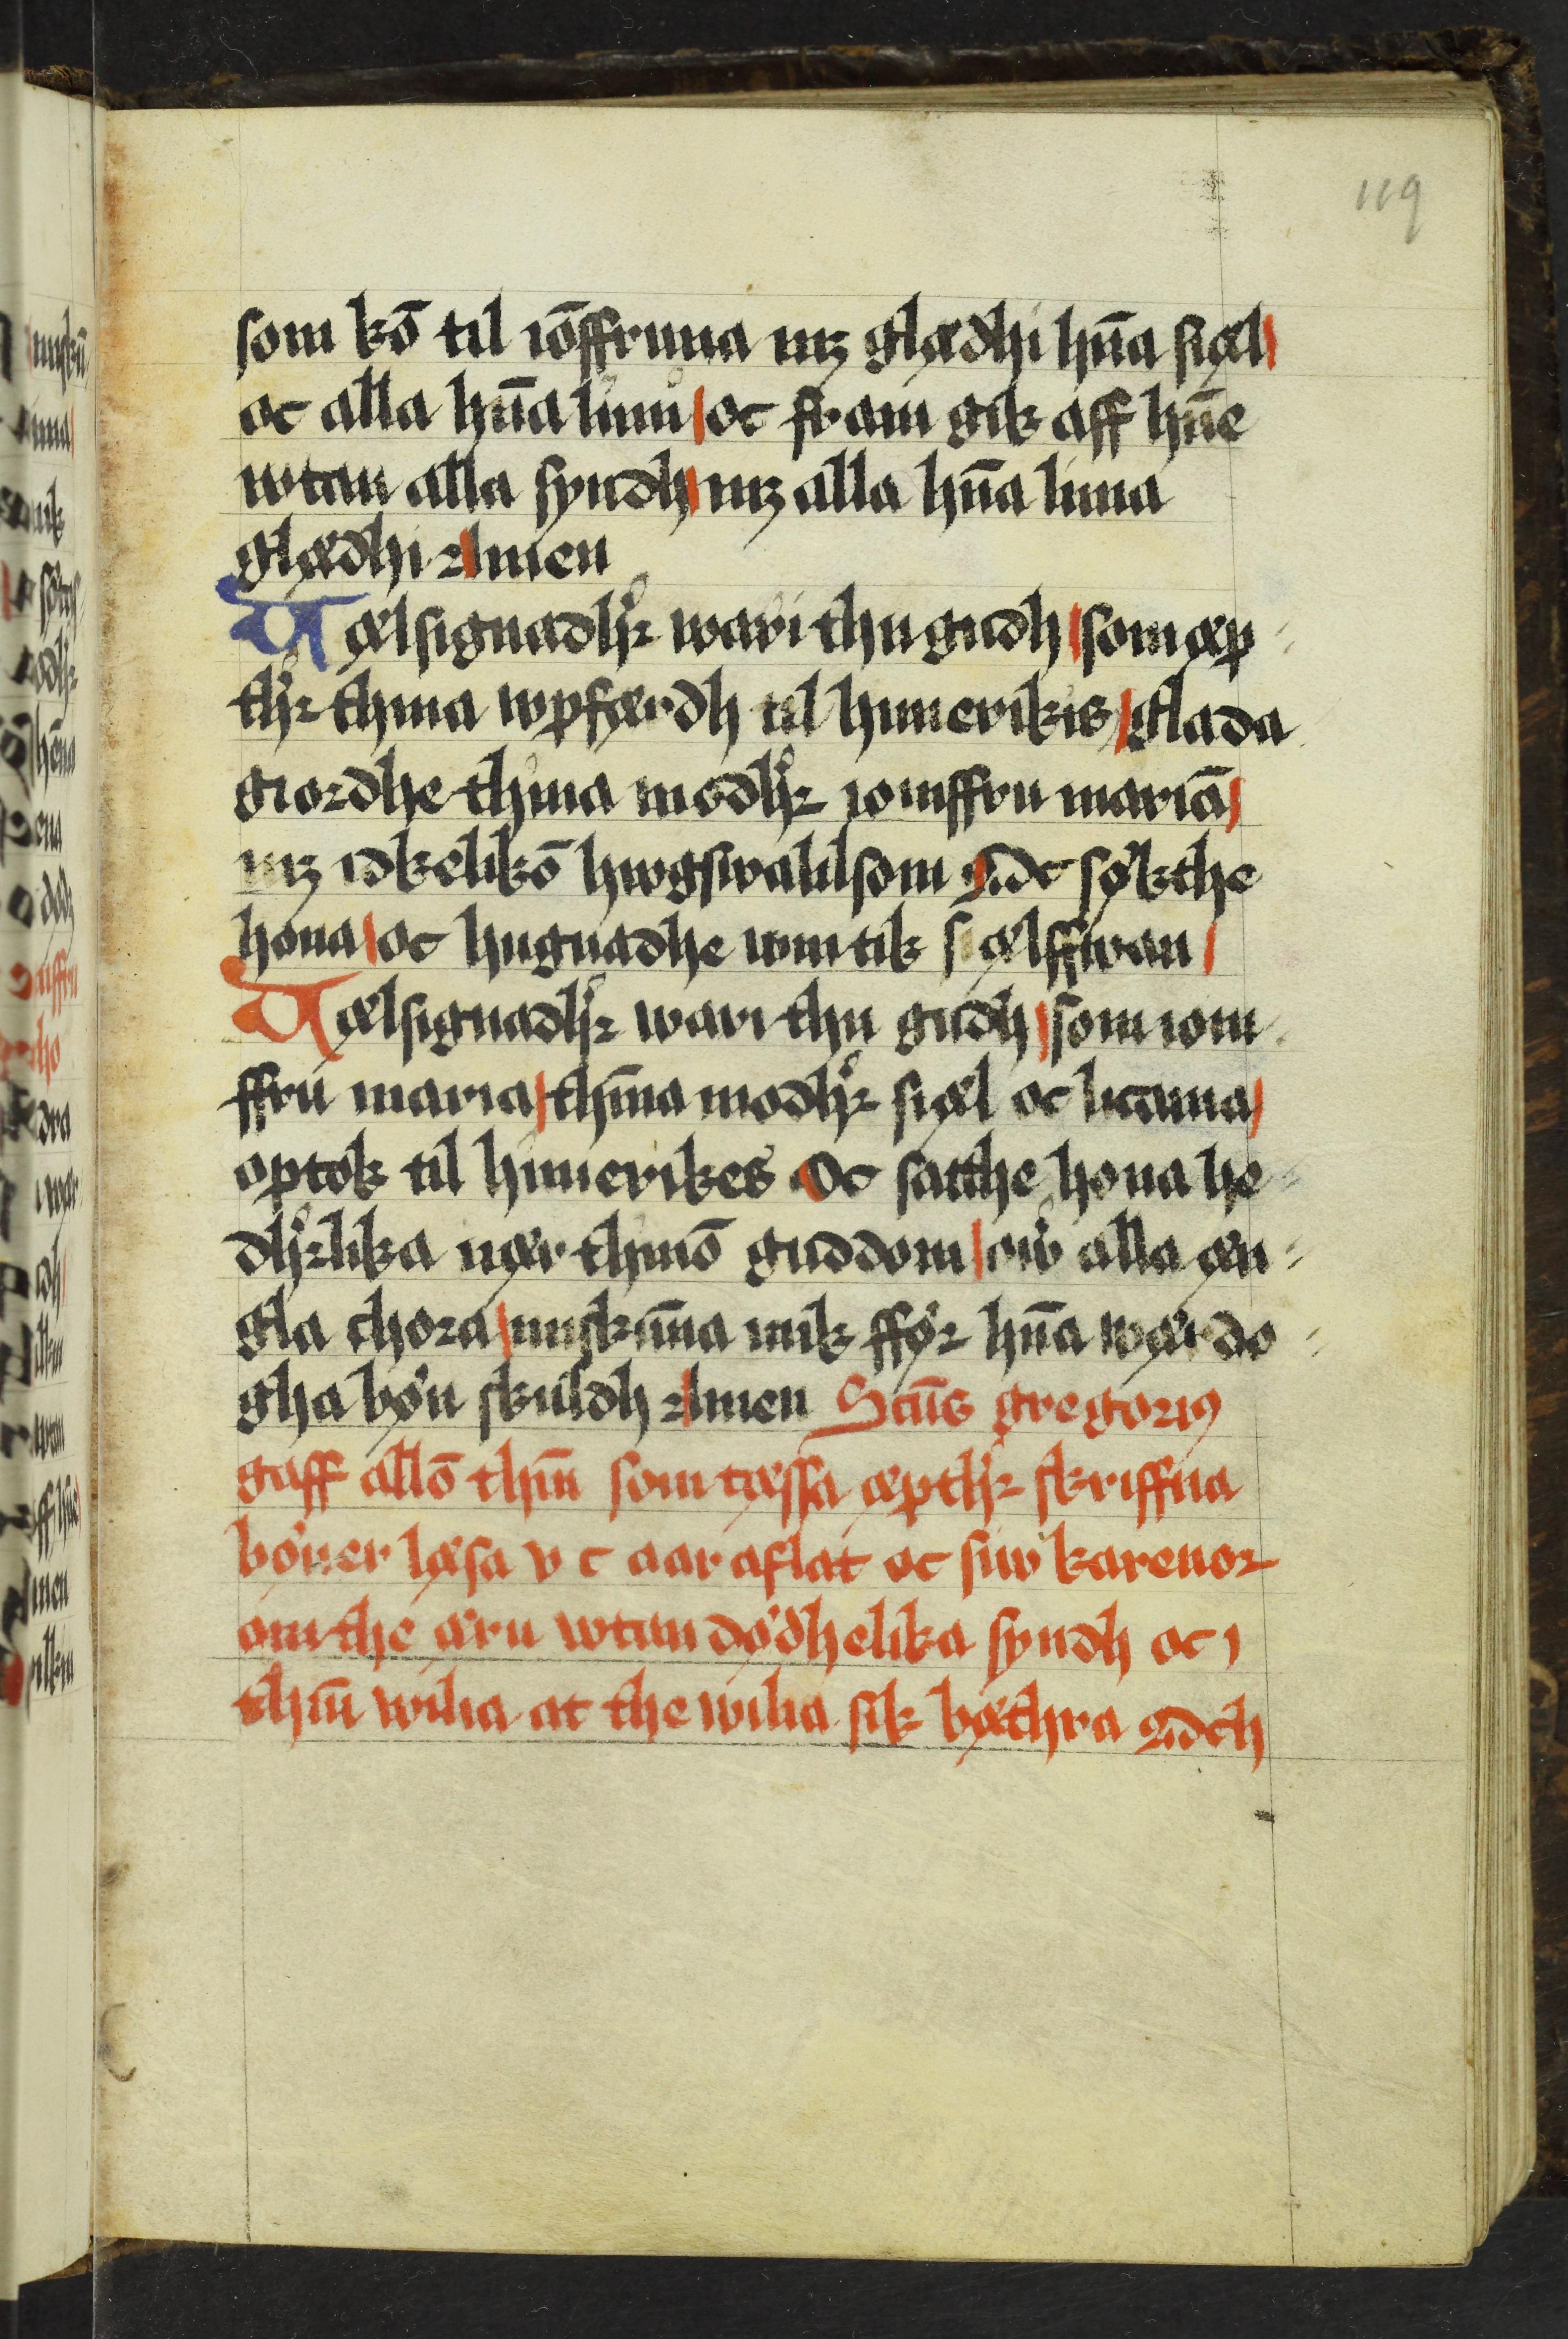 119
som kō til iōffruna mʒ glædhi hn̄a siæl
oc alla hn̄a limu / oc fram gik aff hn̄e
wtan alla syndh / mʒ alla hn̄a lima
glædhi Amen
Uælsignadhꝛ wari thu gudh / som æp⸗
thꝛ thina wpfærdh til himerikis / glada
giordhe thina modhꝛ iomffru mariā /
mʒ idkelikō hwgswalilsom Oc sökthe
hona / oc hugnadhe wm tik siælffwan /
Uælsignadhꝛ wari thu gudh / som iom⸗
ffru maria / thīna modhꝛ siæl oc licama /
optok til himerikes Oc satthe hona he⸗
dhꝛlika nær thinō guddom / ow̓ alla æn⸗
gla chora / miskūna mik fför hn̄a wærdo⸗
gha bön skuldh Amen Scūs gregoriꝰ
gaff allō thm̄ som tæssa æpthꝛ skriffna
böner læsa v c aar aflat oc siw karenor
om the æru wtan dödhelika syndh oc i
thm̄ wilia at the wilia sik bæthra Och